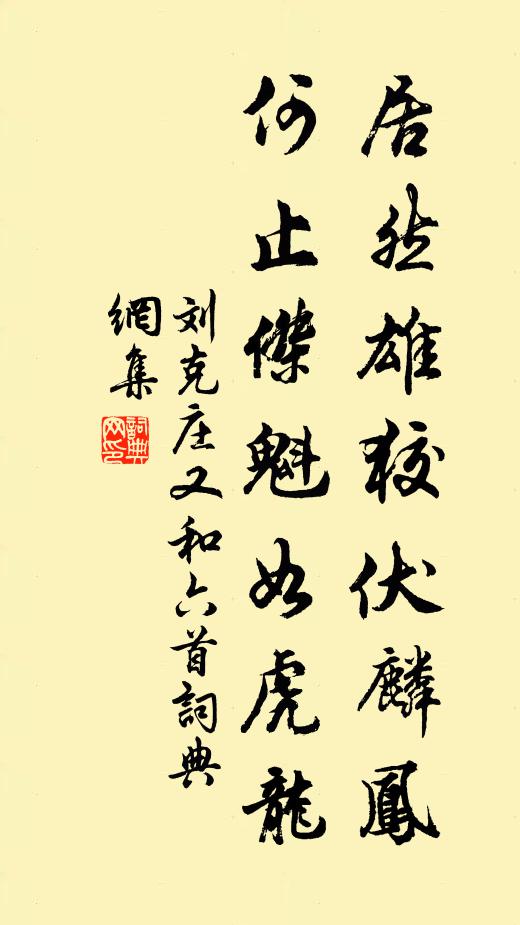 居然雄狡伏麟鳳
何止傑魁如虎龍
刘克庄又和六首詞典
網集
詞典
网印